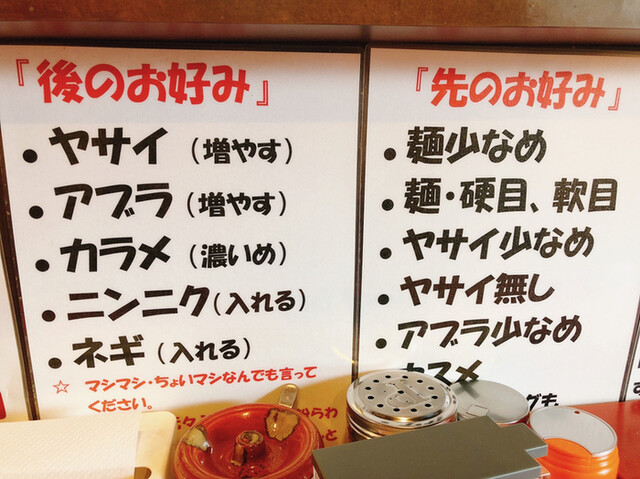 『後のお好み』
• ヤサイ（増やす）
• アブラ（増やす）
• カラメ（濃いめ）
• ニンニク（入れる）
• ネギ（入れる）
☆ マシマシ・ちょいマシなんでも言って
ください。
『先のお好み』
• 麺少なめ
• 麺・硬目、軟目
• ヤサイ少なめ
• ヤサイ無し
• アブラ少なめ